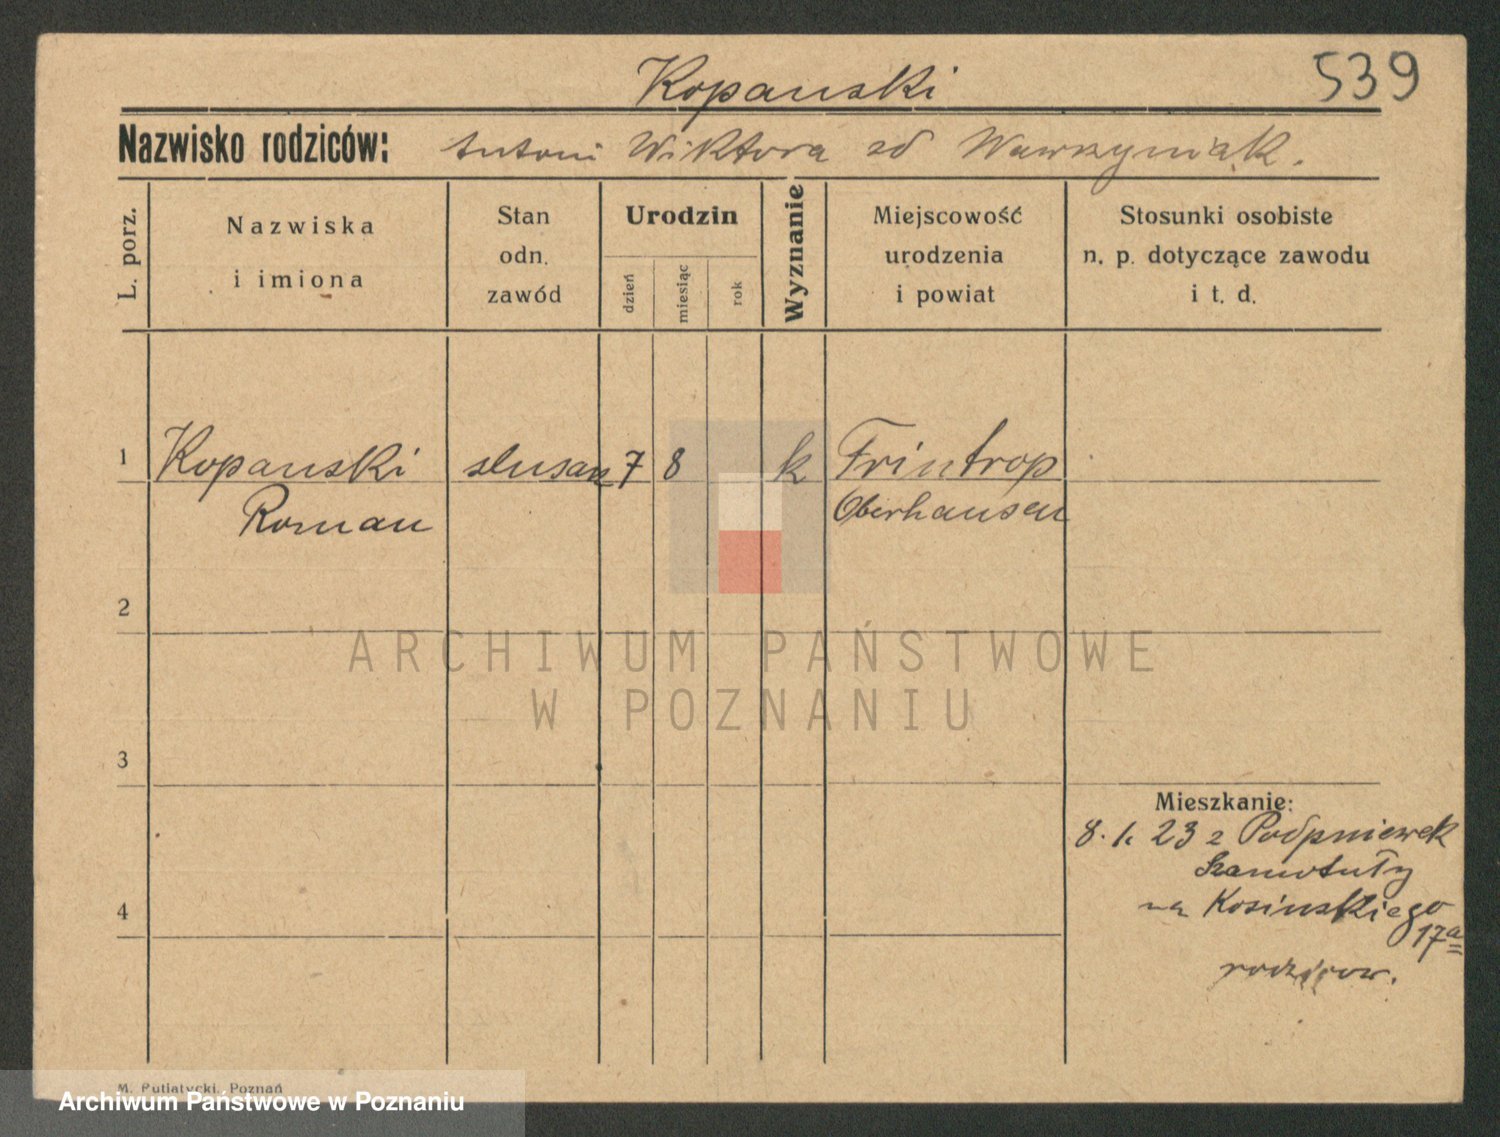 Kopanski
539
Nazwisko rodziców: Antoni Wiktora zd Wawrzyniak.
L. porz.
Nazwiska
i imiona
Stan
odn.
zawód
Urodzin
dzień
miesiąc
rok
Wyznanie
Miejscowość
urodzenia
i powiat
Stosunki osobiste
n. p. dotyczące zawodu
i t. d.
1 Kopanski ślusarz 7 8 k Frintrop
Roman Oberhausen
2
3
4
Mieszkanie:
8. 1. 23 z Podpniewek
Szamotuły
na Kosinskiego
17a
rodziców.
ARCHIWUM PAŃSTWOWE
W POZNANIU
M. Putiatycki, Poznań
Archiwum Państwowe w Poznaniu